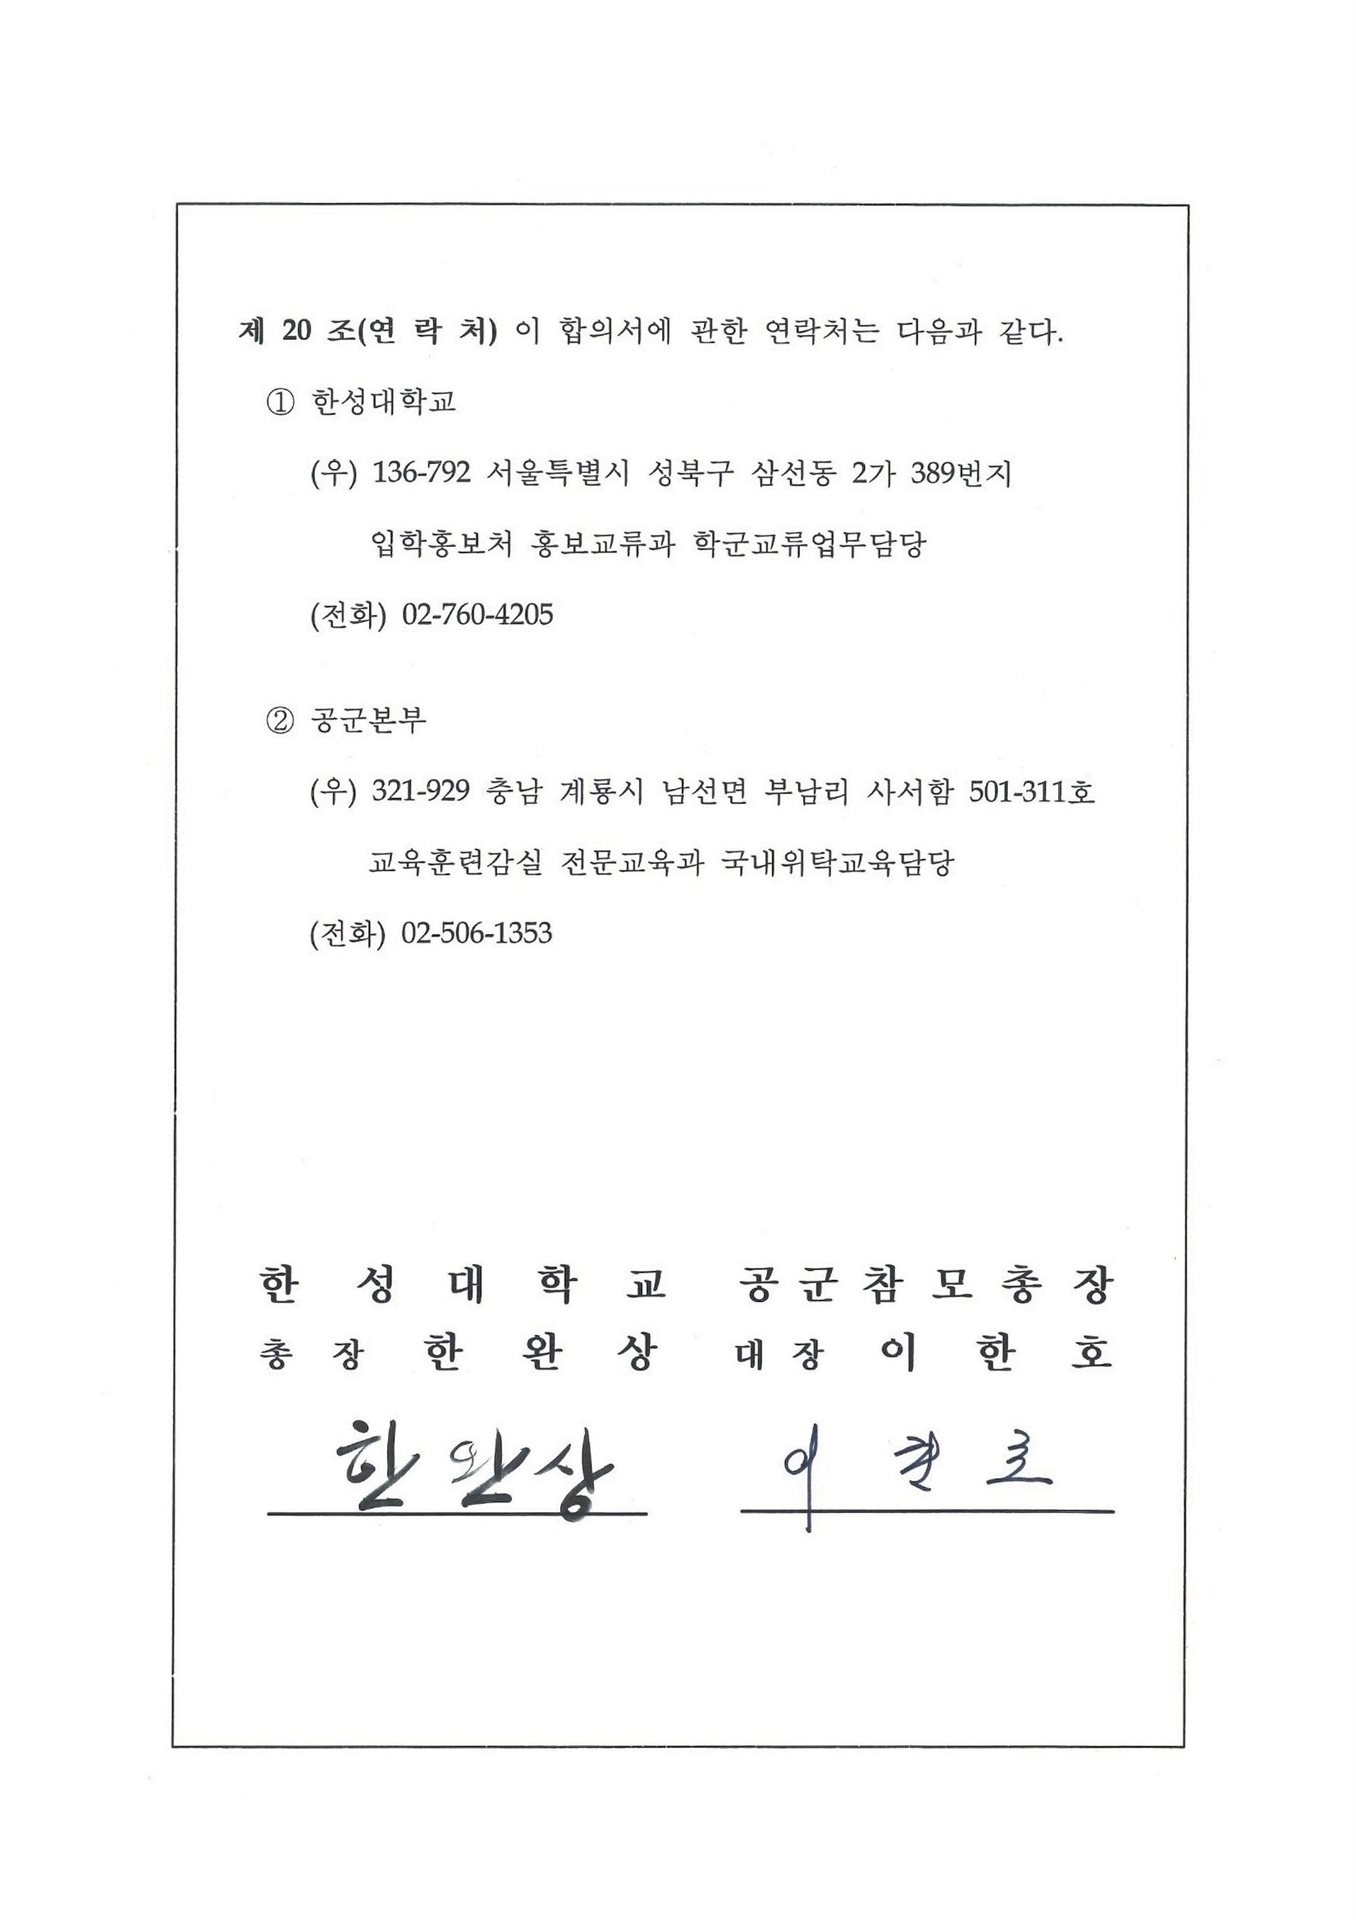 제 20 조(연 락 처) 이 합의서에 관한 연락처는 다음과 같다.
① 한성대학교
(우) 136-792 서울특별시 성북구 삼선동 2가 389번지
입학홍보처 홍보교류과 학군교류업무담당
(전화) 02-760-4205
② 공군본부
(우) 321-929 충남 계룡시 남선면 부남리 사서함 501-311호
교육훈련감실 전문교육과 국내위탁교육담당
(전화) 02-506-1353
한 성 대 학 교
총 장 한 완 상
한 완 상
공 군 참 모 총 장
대 장 이 한 호
이 한 호